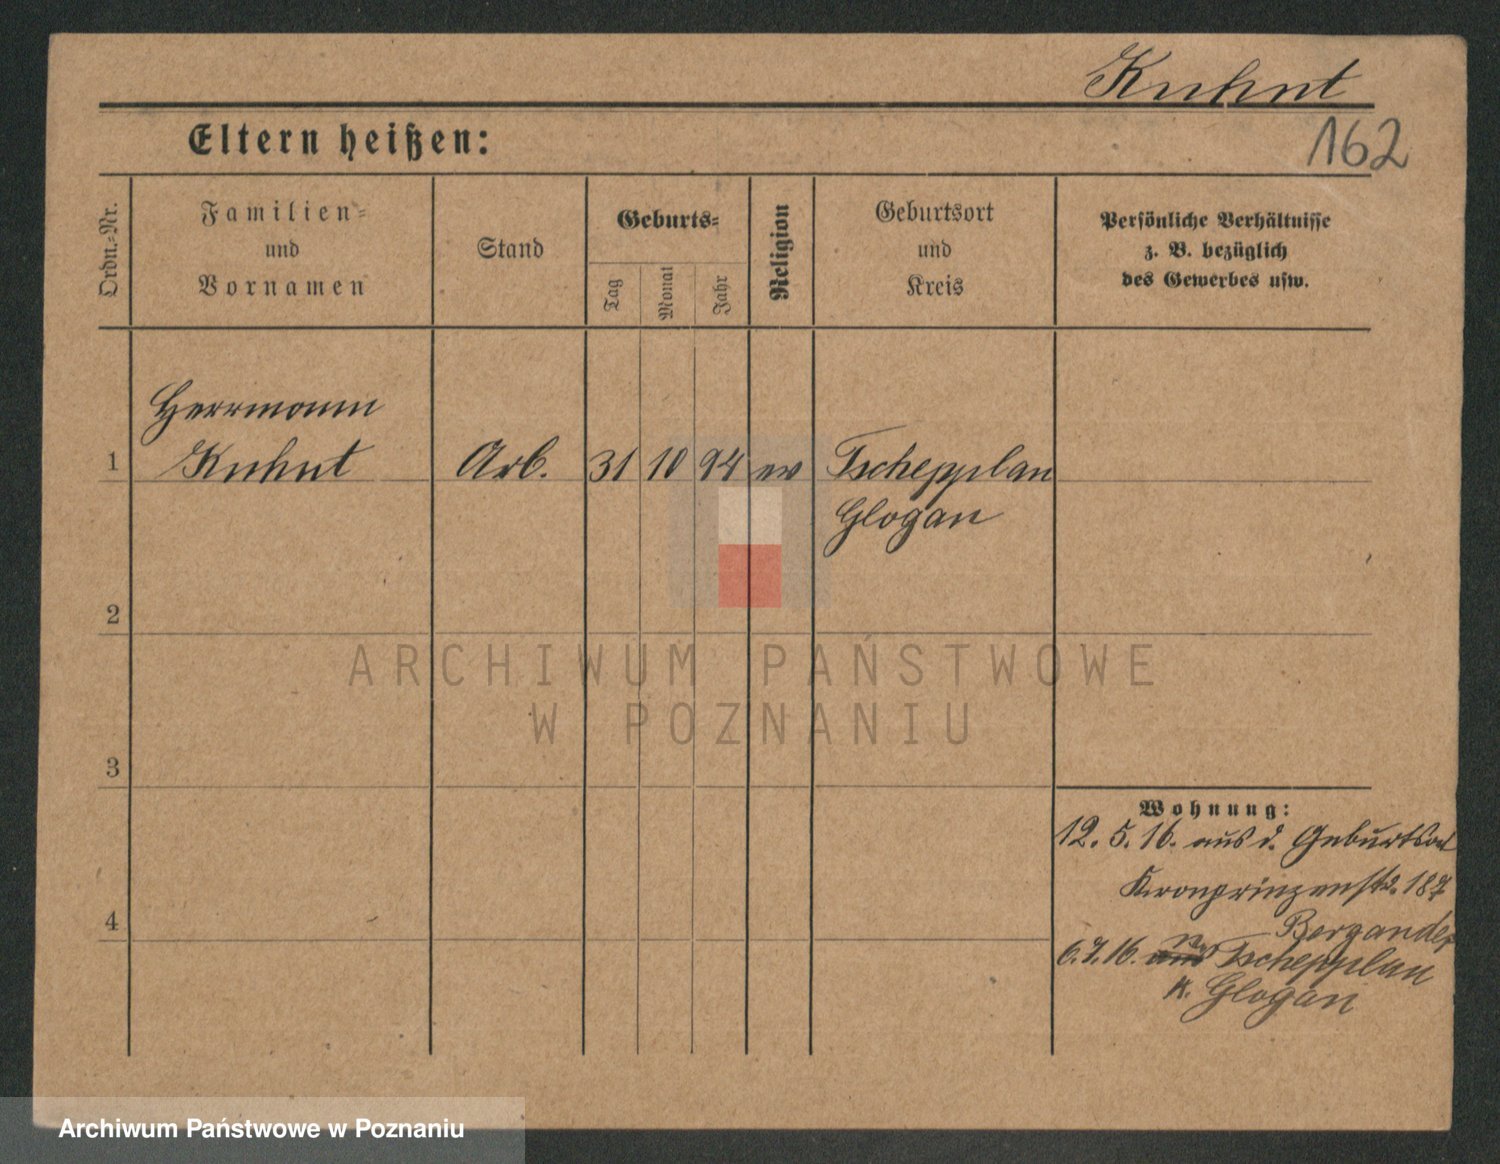 Kuhnt
162
Eltern heißen:
Ordn.-Nr.
Familien-
und
Vornamen
Stand
Geburts-
Tag
Monat
Jahr
Religion
Geburtsort
und
Kreis
Persönliche Verhältnisse
z. B. bezüglich
des Gewerbes usw.
Herrmann
1 Kuhnt Arb. 31 10 94 ev Tschepplau
Glogau
2
3
4
Wohnung:
12. 5. 16. aus d. Geburtsort
Kronprinzenstr. 187
Bergander
6. 7. 16. Tschepplau
K. Glogau
ARCHIWUM PAŃSTWOWE
W POZNANIU
Archiwum Państwowe w Poznaniu